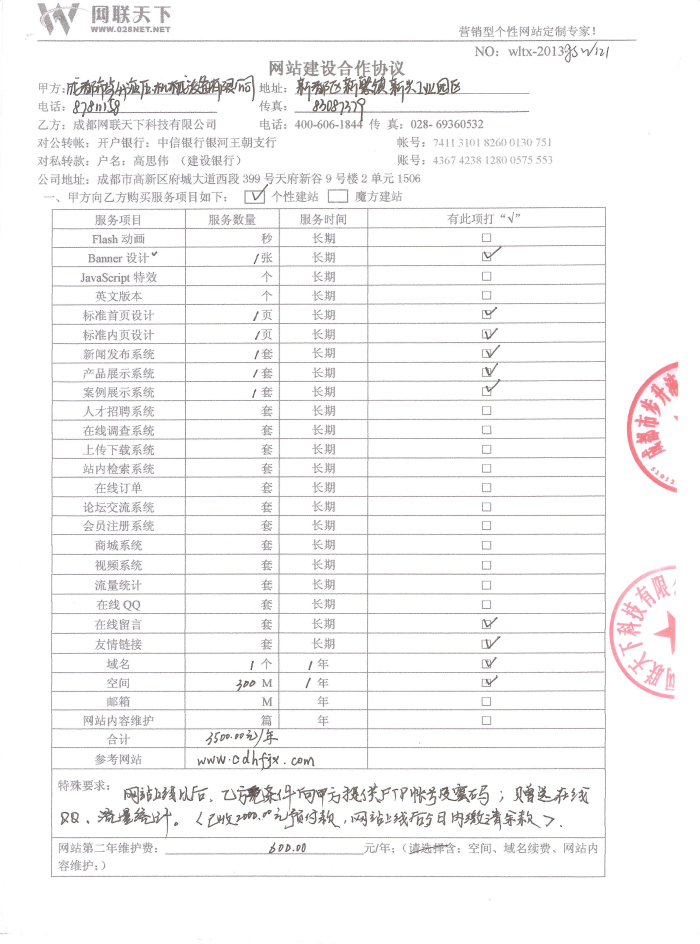 网联天下
WWW.028NET.NET
营销型个性网站定制专家！
NO：wltx-2013
网站建设合作协议
甲方：成都市 机械设备有限公司 地址：新都区新繁镇新兴工业园区
电话： 传真：83087379
乙方：成都网联天下科技有限公司 电话：400-606-1844 传 真：028- 69360532
对公转帐：开户银行：中信银行银河王朝支行 帐号：7411 3101 8260 0130 751
对私转款：户名：高思伟 （建设银行） 账号：4367 4238 1280 0575 553
公司地址：成都市高新区府城大道西段 399 号天府新谷 9 号楼 2 单元 1506
一、甲方向乙方购买服务项目如下：☑ 个性建站 □ 魔方建站
服务项目 服务数量 服务时间 有此项打“√”
Flash 动画 秒 长期 □
Banner 设计 1张 长期 ☑
JavaScript 特效 个 长期 □
英文版本 个 长期 □
标准首页设计 1页 长期 ☑
标准内页设计 1页 长期 ☑
新闻发布系统 1套 长期 ☑
产品展示系统 1套 长期 ☑
案例展示系统 1套 长期 ☑
人才招聘系统 套 长期 □
在线调查系统 套 长期 □
上传下载系统 套 长期 □
站内检索系统 套 长期 □
在线订单 套 长期 □
论坛交流系统 套 长期 □
会员注册系统 套 长期 □
商城系统 套 长期 □
视频系统 套 长期 □
流量统计 套 长期 □
在线 QQ 套 长期 □
在线留言 套 长期 ☑
友情链接 套 长期 ☑
域名 1 个 1 年 ☑
空间 300 M 1 年 ☑
邮箱 M 年 □
网站内容维护 篇 年 □
合计 3500.00元/年
参考网站 www.cdhfjx.com
特殊要求：网站上线以后，乙方 条件向甲方提供FTP帐号及密码；赠送在线
QQ、流量统计。（已收2000.00元预付款，网站上线后5日内缴清余款）.
网站第二年维护费： 600.00 元/年；（请选择含：空间、域名续费、网站内
容维护；）
成都市步升
网联天下科技有限